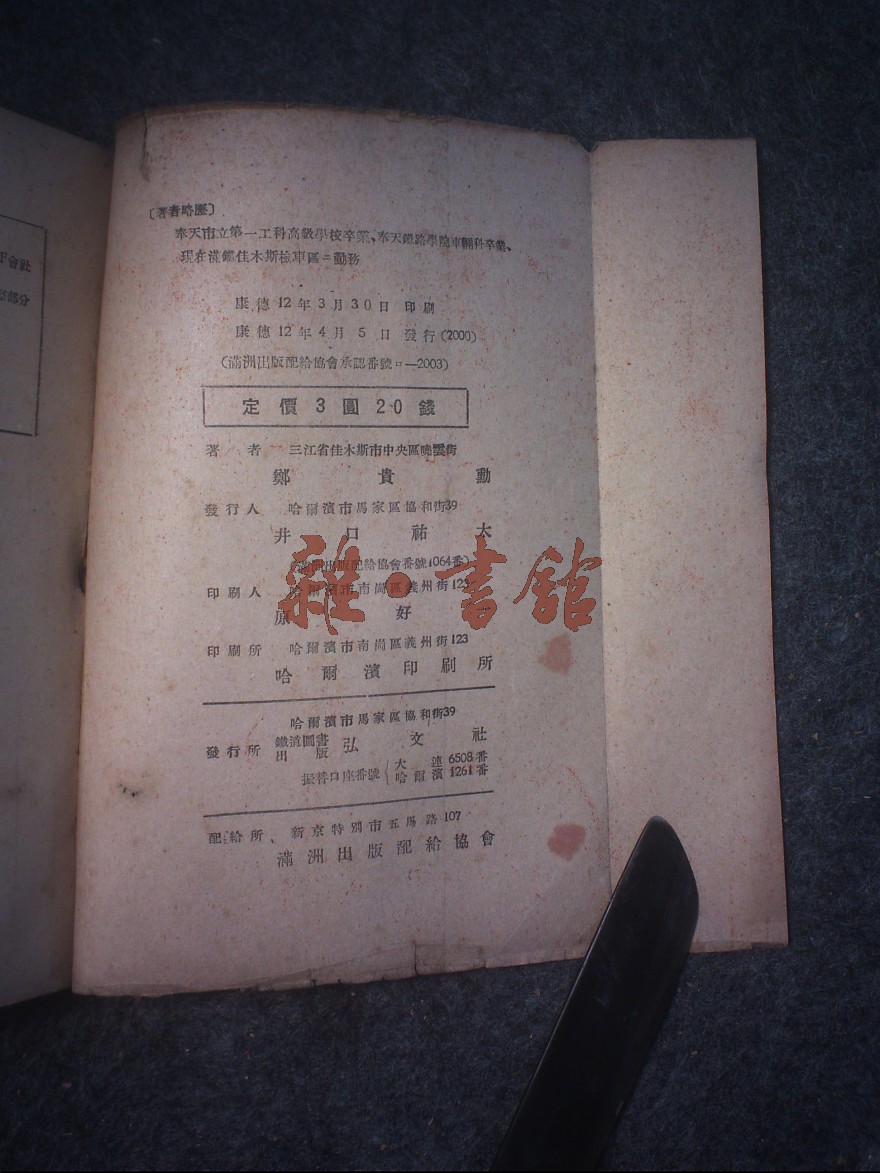 下會社
部分
〔著者略歷〕
奉天市立第一工科高級學校卒業、奉天鐵路學院車輛科卒業、
現在滿鐵佳木斯檢車區ニ勤務
康德12年3月30日 印刷
康德12年4月5日 發行(2000)
(滿洲出版配給協會承認番號ロ—2003)
定價3圓20錢
著者 三江省佳木斯市中央區曉雲街
鄭貴勳
發行人 哈爾濱市馬家區協和街39
井口祐太
(滿洲出版配給協會番號1064番)
印刷人 哈爾濱市南崗區義州街123
原 好
印刷所 哈爾濱市南崗區義州街123
哈爾濱印刷所
哈爾濱市馬家區協和街39
發行所 鐵道圖書出版 弘文社
振替口座番號 大連 6508番
哈爾濱 1261番
配給所、新京特別市五馬路107
滿洲出版配給協會
雜·書館